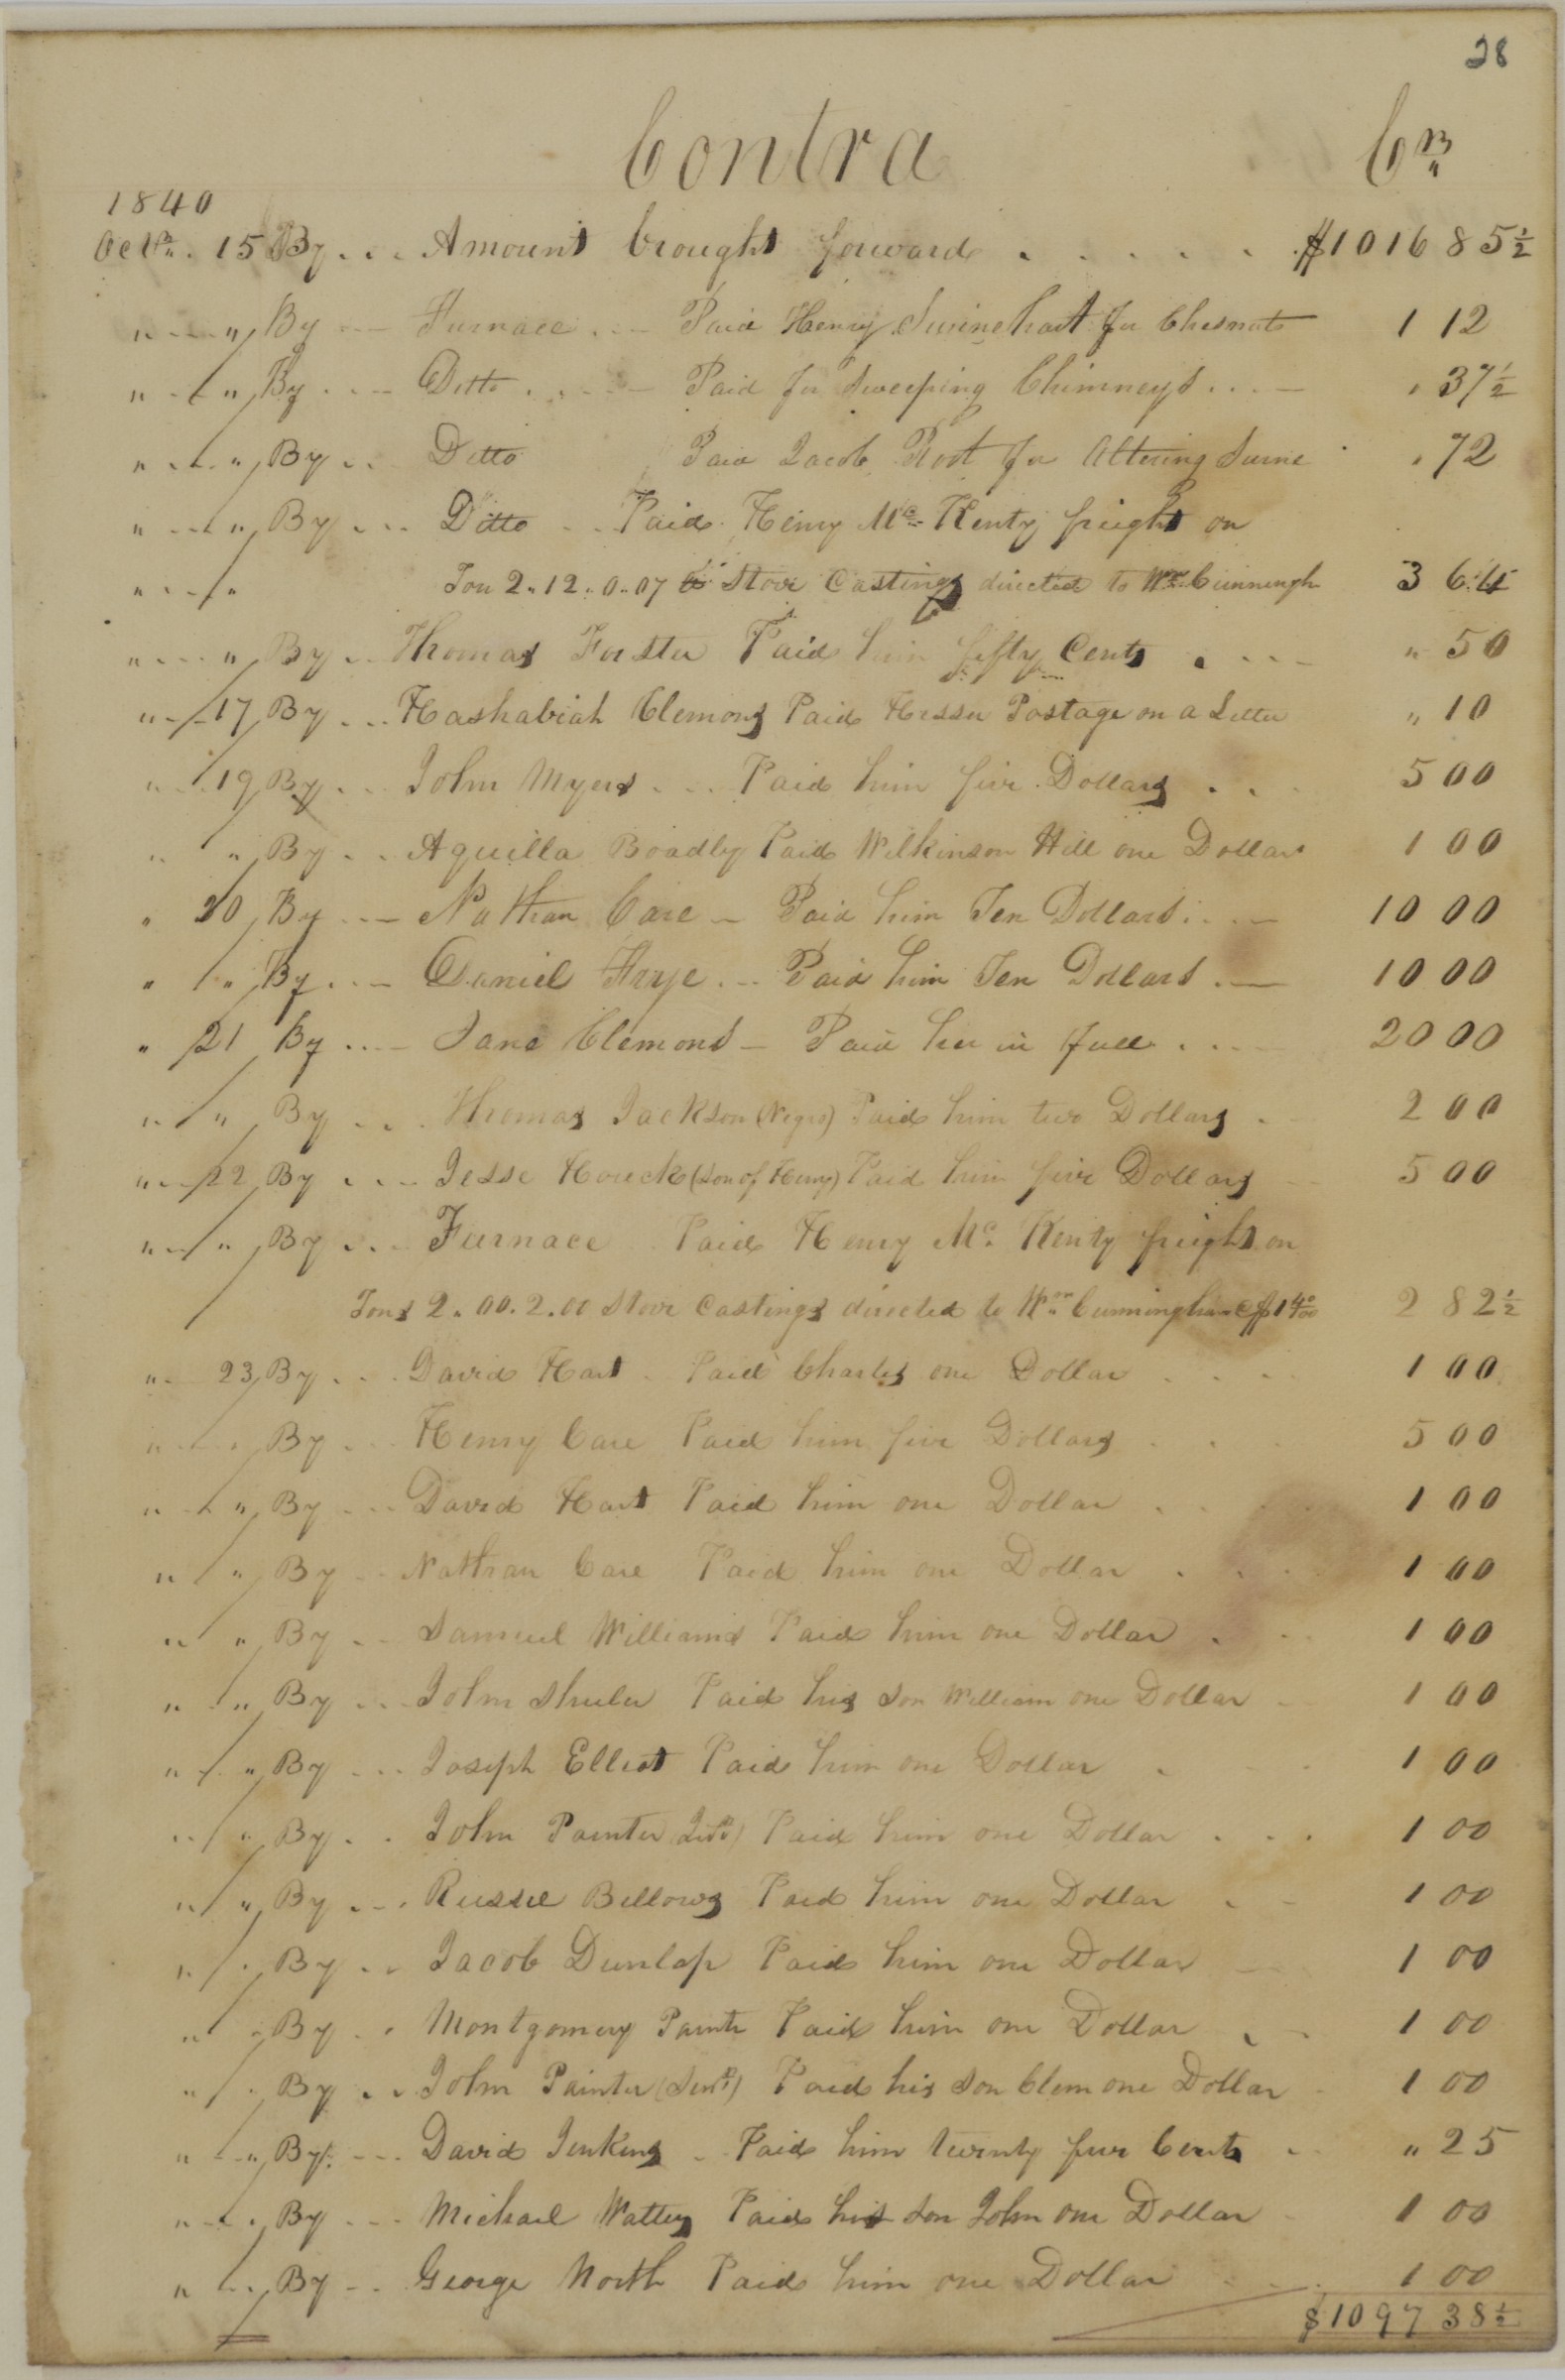 28
Contra Cr
1840
Octr. 15 By Amount brought forward $1016 85½
" " By Furnace Paid Henry Swinehart for Chesnuts 1 12
" " By Ditto Paid for Sweeping Chimneys " 37½
" " By Ditto Paid Jacob Root for Altering Swine " 72
" " By Ditto Paid Henry Mc Kenty freight on
" " Ton 2.. 12.. 0.. 07 Stove Castings directed to Wm Cunningh 3 64
" " By Thomas Foster Paid him fifty Cents " 50
" 17 By Hashabiah Clemons Paid Hesser Postage on a Letter " 10
" 19 By John Myers Paid him five Dollars 5 00
" " By Aquilla Boadly Paid Wilkinson Hill one Dollar 1 00
" 20 By Nathan Care Paid him Ten Dollars 10 00
" " By Daniel Frye Paid him Ten Dollars 10 00
" 21 By Jane Clemons Paid her in full 20 00
" " By Thomas Jackson (Negro) Paid him two Dollars 2 00
" 22 By Jesse Houck (Son of Henry) Paid him five Dollars 5 00
" " By Furnace Paid Henry Mc. Kenty freight on
Tons 2. 00. 2. 00 Stove Castings directed to Wm Cunningham @ $1 40/100 2 82½
" 23 By David Hart Paid Charles one Dollar 1 00
" " By Henry Care Paid him five Dollars 5 00
" " By David Hart Paid him one Dollar 1 00
" " By Nathan Care Paid him one Dollar 1 00
" " By Samuel Williams Paid him one Dollar 1 00
" " By John Shuler Paid his Son William one Dollar 1 00
" " By Joseph Elliot Paid him one Dollar 1 00
" " By John Painter (Junr) Paid him one Dollar 1 00
" " By Russel Bellows Paid him one Dollar 1 00
" " By Jacob Dunlap Paid him one Dollar 1 00
" " By Montgomery Paintr Paid him one Dollar 1 00
" " By John Painter (Senr) Paid his Son Clem one Dollar 1 00
" " By David Jenkins Paid him twenty five Cents " 25
" " By Michael Watters Paid his Son John one Dollar 1 00
" " By George North Paid him one Dollar 1 00
$1097 38½